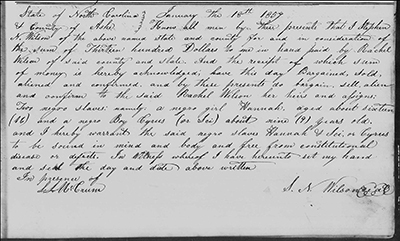 State of North Carolina } January the 18th 1859
& County of Ashe } Know all men by these presents That I Stephen
N. Wilson of the above name state and county for and in consideration of
the sum of Thirteen hundred Dollars to me in hand paid by Rachel
Wilson of said county and state. And the receipt of which sum
of money is hereby acknowledged, have this day Bargained, sold,
aliened and confirmed, and by these presents do bargain, sell, alien
and confirm to the said Rachel Wilson her heirs and assigns;
Two negro slaves; namely: a negro girl Hannah, aged about sixteen
(16) and a negro Boy Cyrus (or Sie) about nine (9) years old.
and I hereby warrant the said negro slaves Hannah & Sie, or Cyrus
to be sound in mind and body and free from constitutional
disease or defects. In Witness whereof I have hereunto set my hand
and seal the day and date above written
In presence of
McCrum
S. N. Wilson